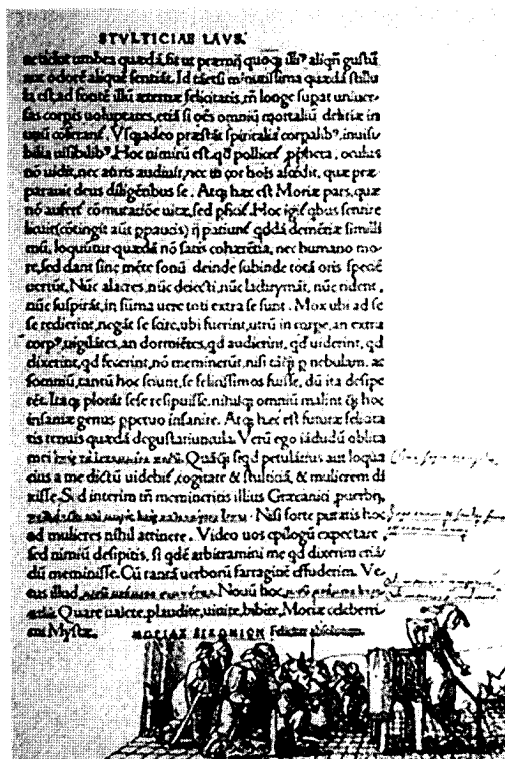 STVLTICIAE LAVS.
accidat umbra quædã, fit ut præmij quoq; illiꝰ aliqñ gustũ
aut odorẽ aliquẽ sentiãt. Id tãetsi minutissima quædã stillu
la est, ad fontẽ illũ æternæ felicitatis, tñ longe supat univer-
sas corpis uoluptates, etiã si oẽs omniũ mortaliũ delitiæ in
unũ
Vsqadeo præstãt spiritalia corpalibꝰ, inuisi
bilia uisibilibꝰ. Hoc nimirũ est, qđ pollicet ppheta, oculus
nõ uidit, nec auris audiuit, nec in cor hoĩs ascẽdit, quæ præ
parauit deus diligẽtibus se. Atq; hæc est Moriæ pars, quæ
nõ aufert cõmutatiõe uitæ, sed pficit. Hoc igit qbus sentire
licuit (cõtingit aũt ppaucis) ij patiunt qddã demẽtiæ simili
mũ, loquũtur quædã nõ satis cohærẽtia, nec humano mo-
re, sed dant sine mẽte sonũ, deinde subinde totã oris speciẽ
uertũt. Nũc alacres, nũc deiecti, nũc lachrymãt, nũc rident,
nũc suspirãt, in sũma uere toti extra se sunt. Mox ubi ad se
se redierint, negãt se scire, ubi fuerint, utrũ in corpe, an extra
corpꝰ, uigilãtes, an dormiẽtes, qd audierint, qd uiderint, qd
dixerint, qd fecerint, nõ meminerũt, nisi tãq̃ p nebulam, ac
somniũ, tantũ hoc sciunt, se felicissimos fuisse, dũ ita desipe
rẽt. Itaq; plorãt sese resipuisse, nihilq; omniũ malint q̃ hoc
insaniæ genus ppetuo insanire. Atq; hæc est futuræ felicita
tis tenuis quædã degustatiuncula. Verũ ego iãdudũ oblita
mei
Quãq̃ siqd petulãtius aut loqua
cius a me dictũ uidebit, cogitate & stulticiã, & mulierem di
xisse. Sed interim tñ memineritis illius Græcanici puerbij,
Nisi forte putatis hoc
ad mulieres nihil attinere. Video uos epilogũ expectare,
sed nimiũ desipitis, si qdẽ arbitramini me qd dixerim etiã
dũ meminisse. Cũ tantã uerborũ farraginẽ effuderim. Ve-
tus illud,
Nouũ hoc,
Quare ualete, plaudite, uiuite, bibite, Moriæ celeberri
mi Mystæ.
ΜΟΡΙΑΣ ΕΓΚΩΜΙΟΝ Feliciter absolutum.